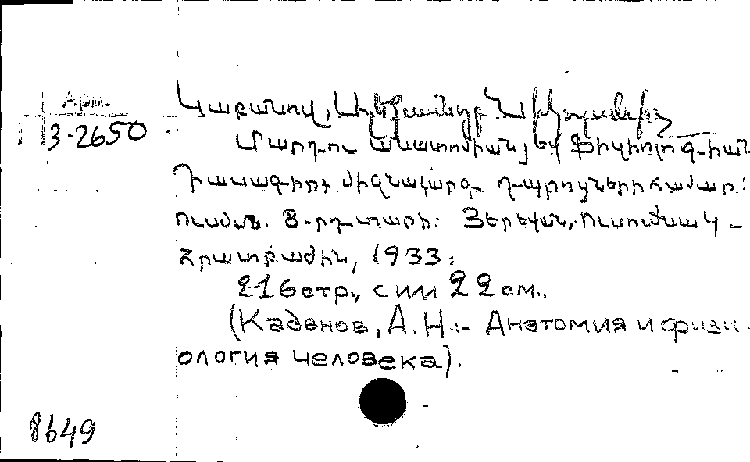 Арм.
3-2650
Կաբանով, Ալեքսանդր Նիկոլաևիչ
Մարդու անատոմիան և ֆիզիոլոգիան
Դասագիրք միջնակարգ դպրոցների համար:
ուսման. 8-րդ տարի: Յերեվան, Ուսումնակ-
հրատբաժին, 1933:
216 стр., с илл 22 см.
(Кабанов, А.Н:- Анатомия и физи-
ология человека).
8649